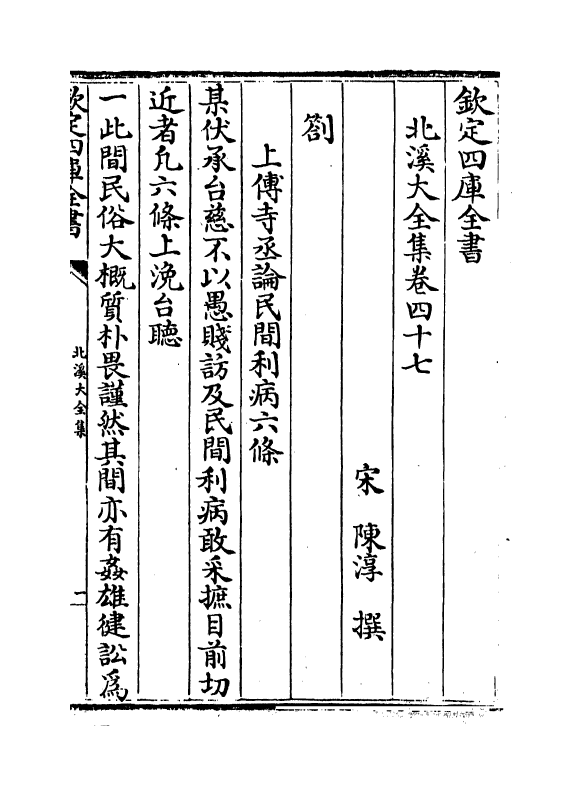 欽定四庫全書
北溪大全集卷四十七
宋 陳淳 撰
劄
上傅寺丞論民間利病六條
某伏承台慈不以愚賤訪及民間利病敢采摭目前切
近者凡六條上浼台聽
一此間民俗大概質朴畏謹然其間亦有姦雄健訟為
欽定四庫全書
北溪大全集
二